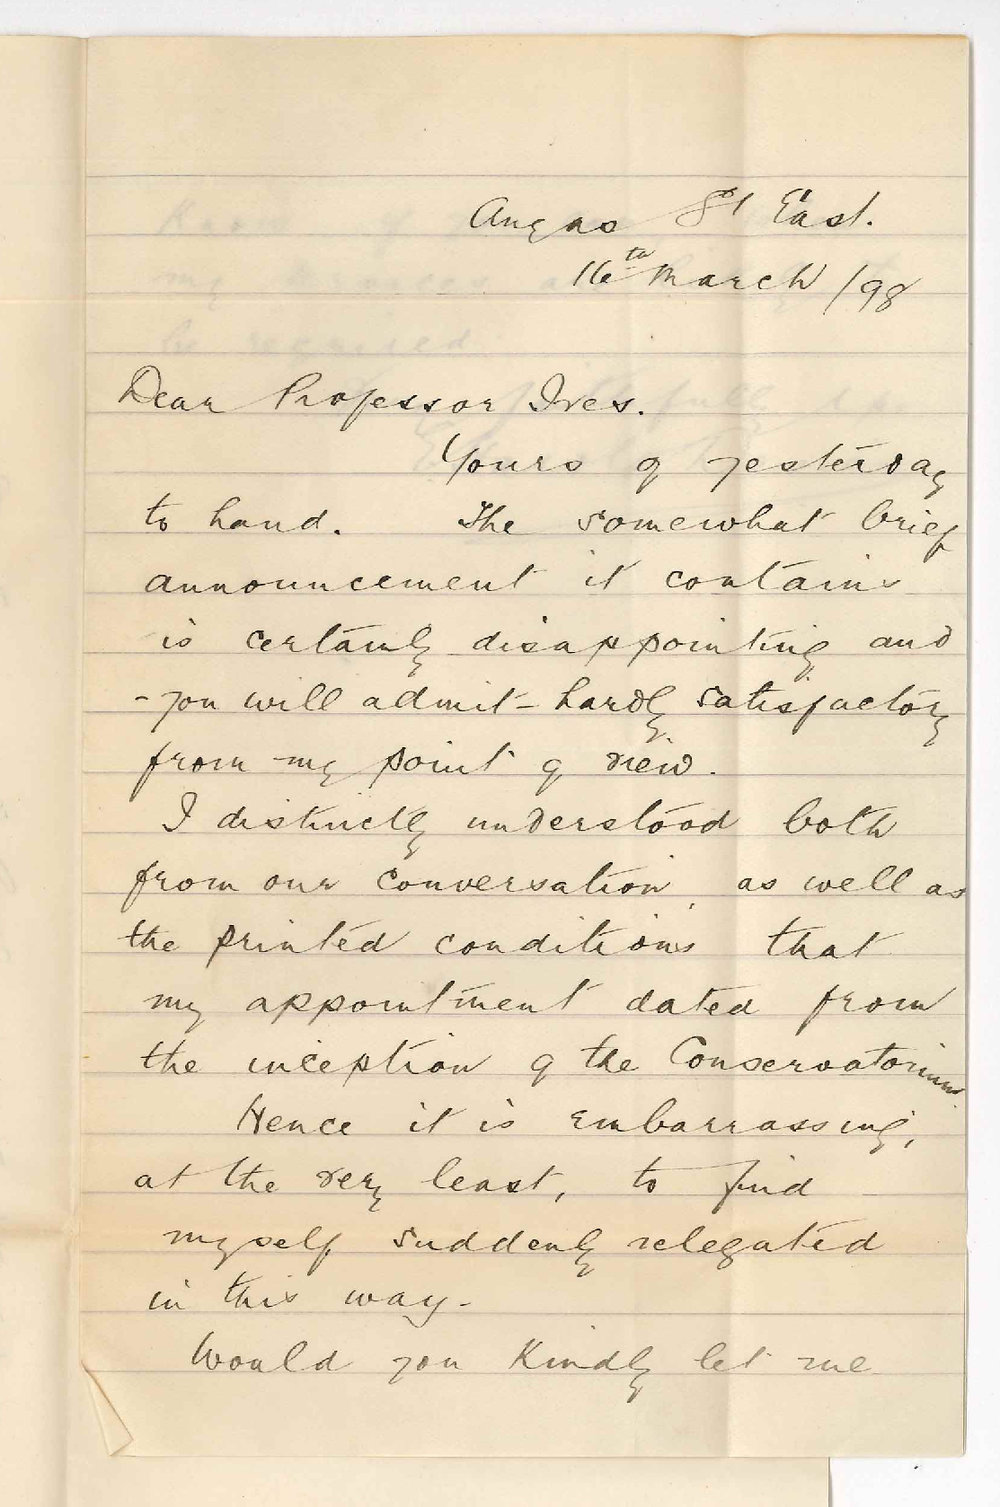 Angas St East.
16th March /98
Dear Professor Ives.
Yours of yesterday
to hand. The somewhat brief
announcement it contains
is certainly disappointing and
- you will admit - hardly satisfactory
from my point of view.
I distinctly understood both
from our conversation as well as
the printed conditions that
my appointment dated from
the inception of the Conservatorium.
Hence it is embarrassing,
at the very least, to find
myself suddenly relegated
in this way.
Would you kindly let me